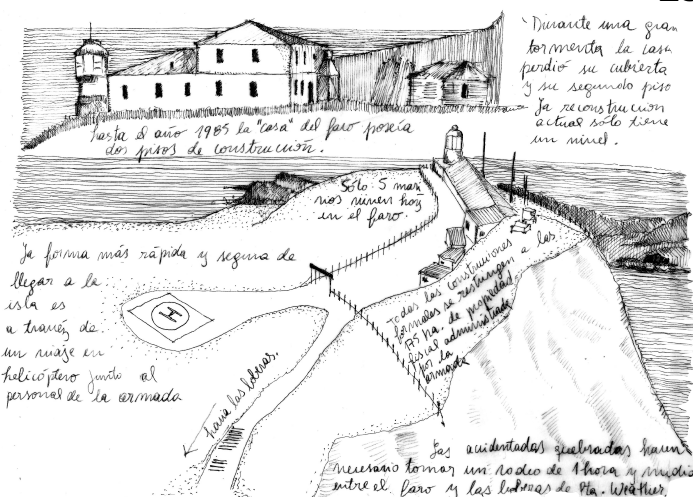 Durante una gran
tormenta la casa
perdió su cubierta
y su segundo piso
La reconstrucción
actual sólo tiene
un nivel.
hasta el año 1985 la "casa" del faro poseía
dos pisos de construcción.
Sólo 5 mari
nos viven hoy
en el faro.
La forma más rápida y segura de
llegar a la
isla es
a través de
un viaje en
helicóptero junto al
personal de la armada
H
Todas las construcciones
formales se restringen a las
ha. de propiedad
fiscal administrada
por la
armada
hacia las loberas.
Las accidentadas quebradas hacen
necesario tomar un rodeo de 1 hora y media
entre el faro y las loberas de Pta. Weather.